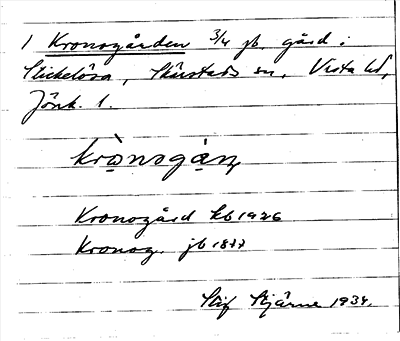 1 Kronogården 3/4 jb. gård i
Stickelösa, Skärstads sn, Vista hd,
Jönk. l.
krònsgàṇ
Kronogård kb 1926
Kronog. jb 1877
Stig Stjärne 1934.